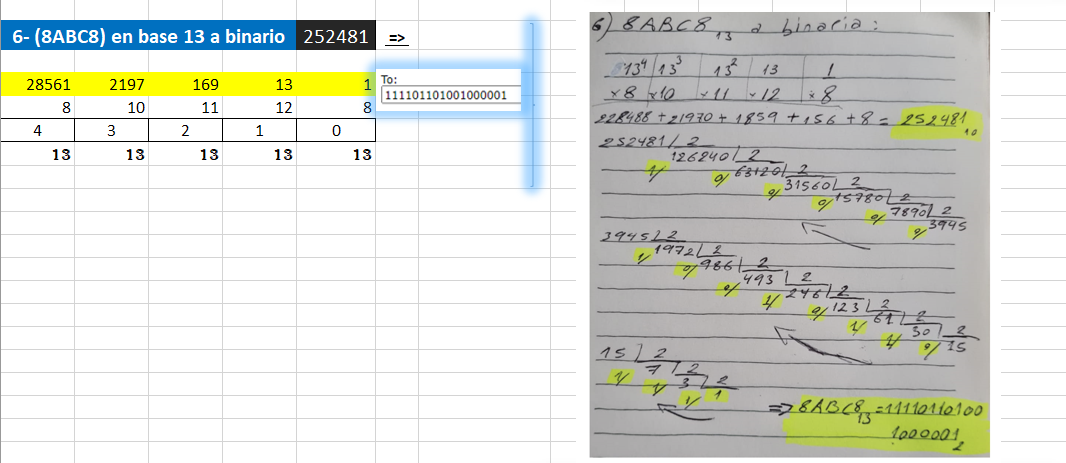 6- (8ABC8) en base 13 a binario 252481 =>
28561 2197 169 13 1
8 10 11 12 8
4 3 2 1 0
13 13 13 13 13
To:
111101101001000001
6) 8ABC8₁₃ a binario:
13⁴ 13³ 13² 13 1
×8 ×10 ×11 ×12 ×8
228488 + 21970 + 1859 + 156 + 8 = 252481₁₀
252481 2
1 126240 2
0 63120 2
0 31560 2
0 15780 2
0 7890 2
0 3945
3945 2
1 1972 2
0 986 2
0 493 2
1 246 2
0 123 2
1 61 2
1 30 2
0 15
15 2
1 7 2
1 3 2
1 1
=> 8ABC8₁₃ = 11110110100
1000001₂